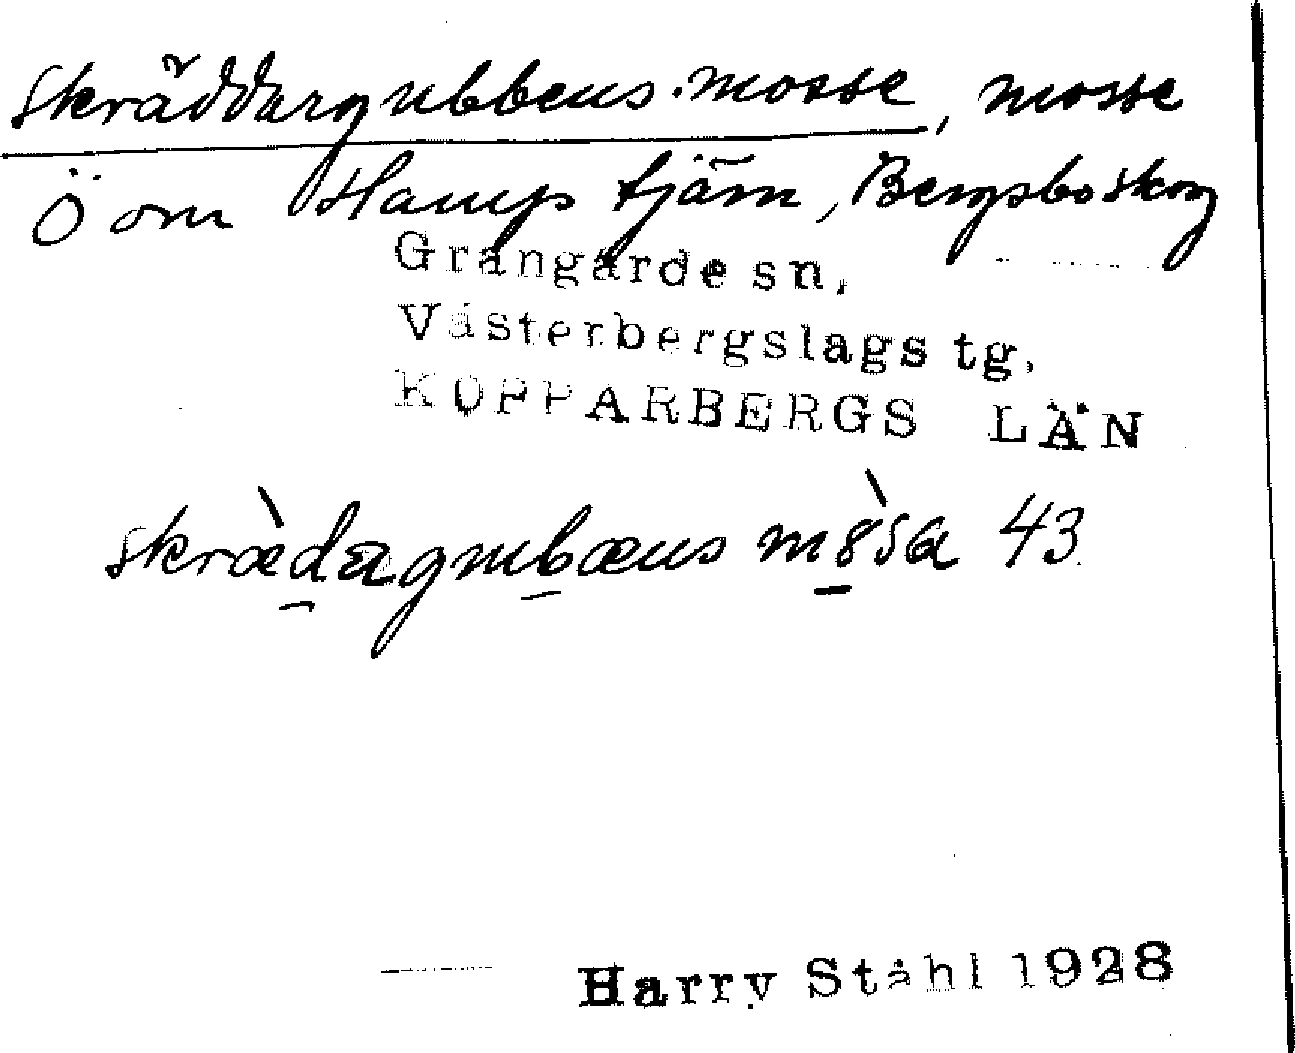 Skräddargubbens mosse, mosse
Ö om Hamptjärn, Bergsbo skog
Grangärde sn,
Västerbergslags tg.
KOPPARBERGS LÄN
skrædagubæns 43
Harry Ståhl 1928